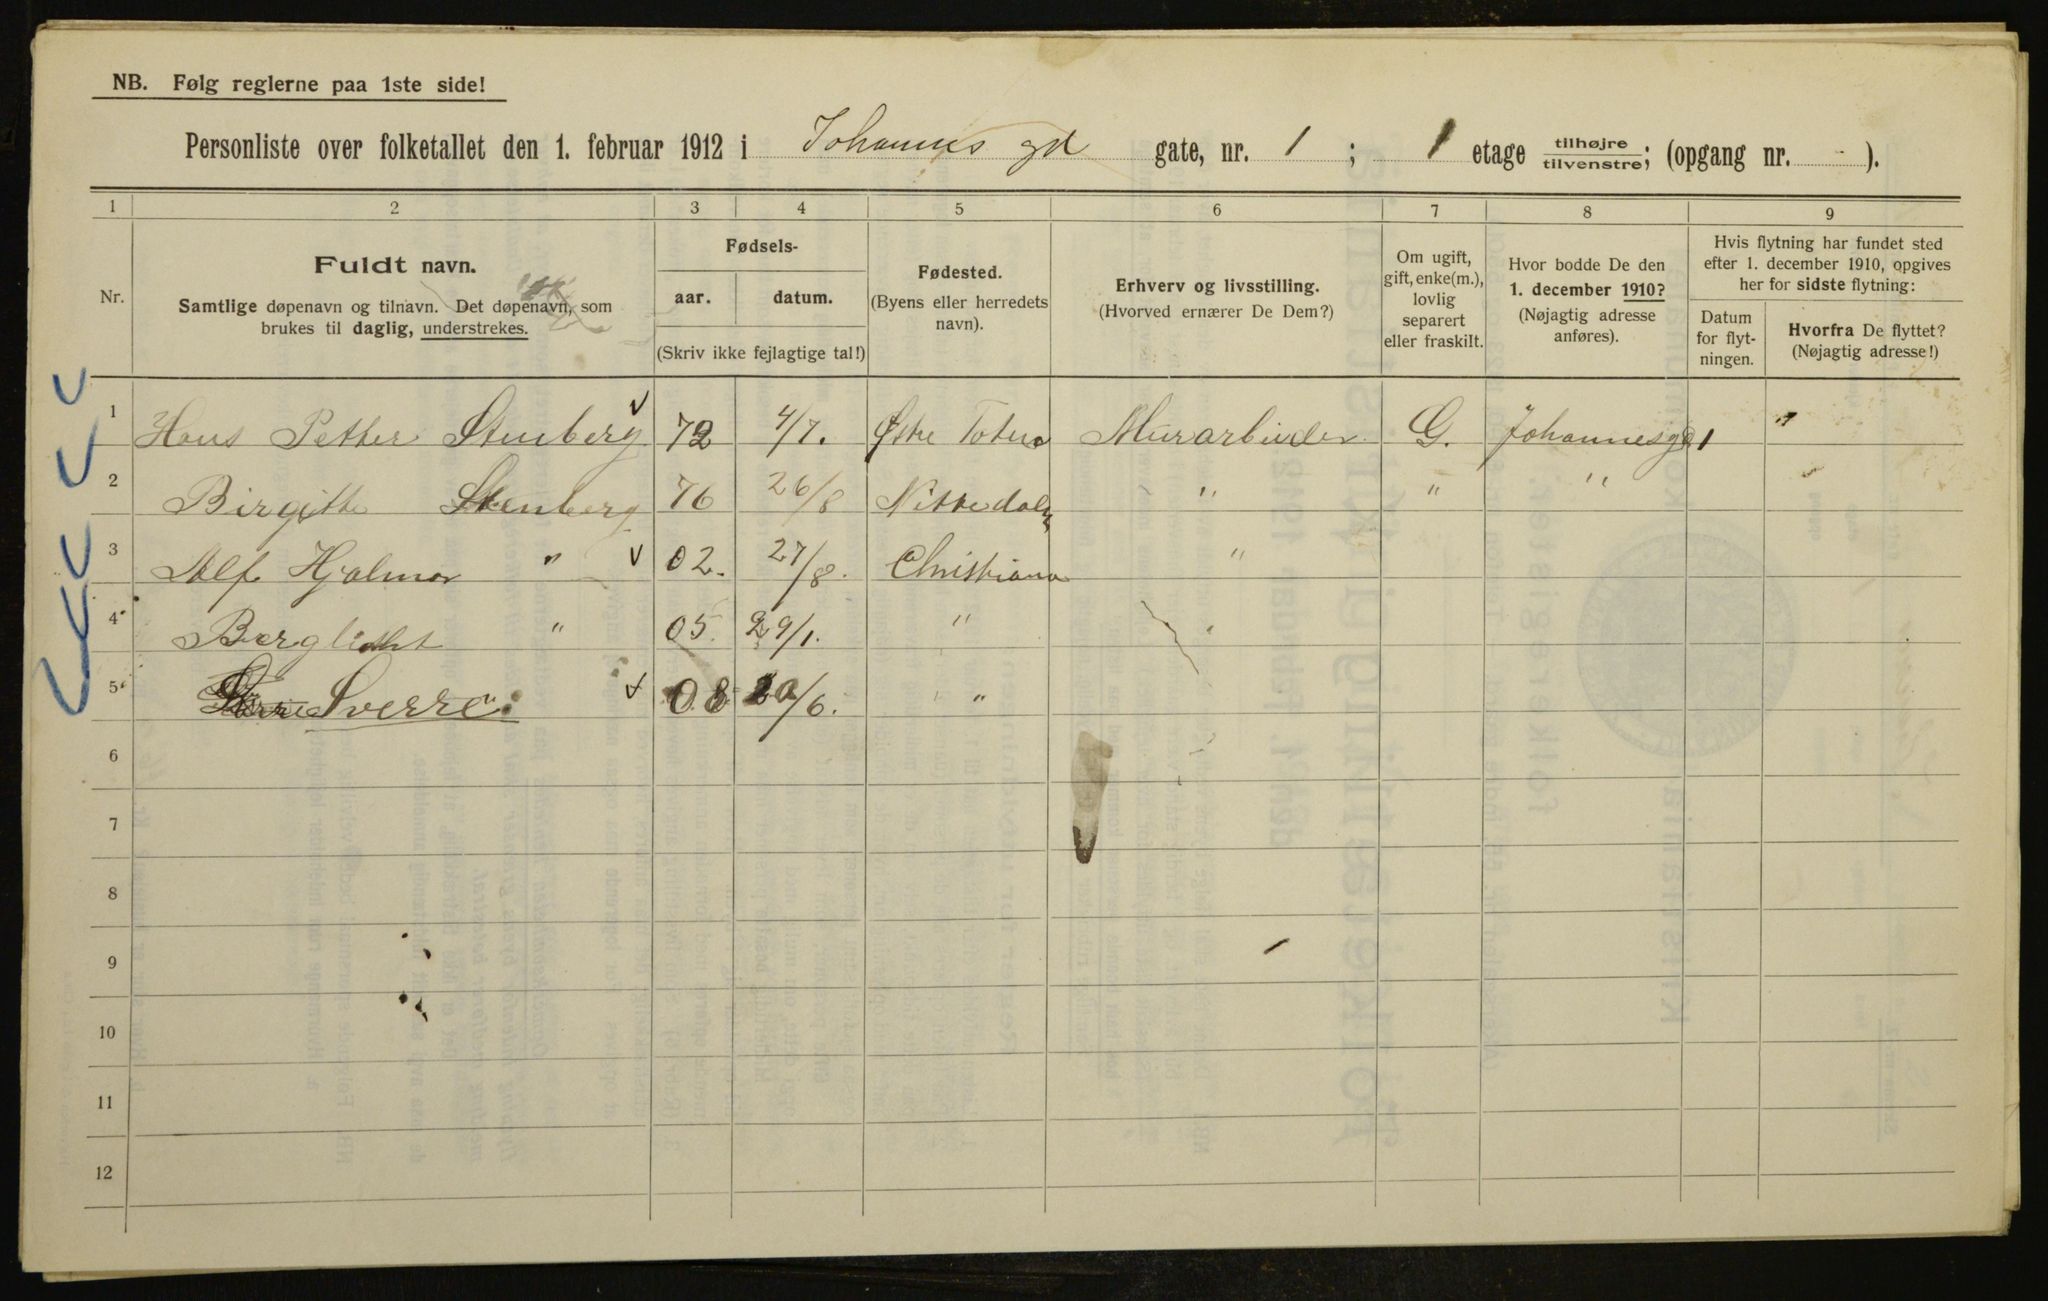 NB. Følg reglerne paa 1ste side!
Personliste over folketallet den 1. februar 1912 i Johannes gd gate, nr. 1 ; 1 etage tilhøjre/tilvenstre; (opgang nr. - ).
1 2 3 4 5 6 7 8 9
Nr.
Fuldt navn.
Samtlige døpenavn og tilnavn. Det døpenavn, som
brukes til daglig, understrekes.
Fødsels-
aar. datum.
(Skriv ikke fejlagtige tal!)
Fødested.
(Byens eller herredets
navn).
Erhverv og livsstilling.
(Hvorved ernærer De Dem?)
Om ugift,
gift, enke(m.),
lovlig
separert
eller fraskilt.
Hvor bodde De den
1. december 1910?
(Nøjagtig adresse
anføres).
Hvis flytning har fundet sted
efter 1. december 1910, opgives
her for sidste flytning:
Datum
for flyt-
ningen.
Hvorfra De flyttet?
(Nøjagtig adresse!)
1 Hans Petter Stenberg 72 4/7. Østre Toten Murarbeider G. Johannesgd 1 "
2 Birgitte Stenberg 76 26/8 Nittedalen " " "
3 Alf Hjalmar " 02. 27/8. Christiana "
4 Bergliot " 05. 29/1. " "
5 Sverre " 08 20/6. "
6
7
8
9
10
11
12